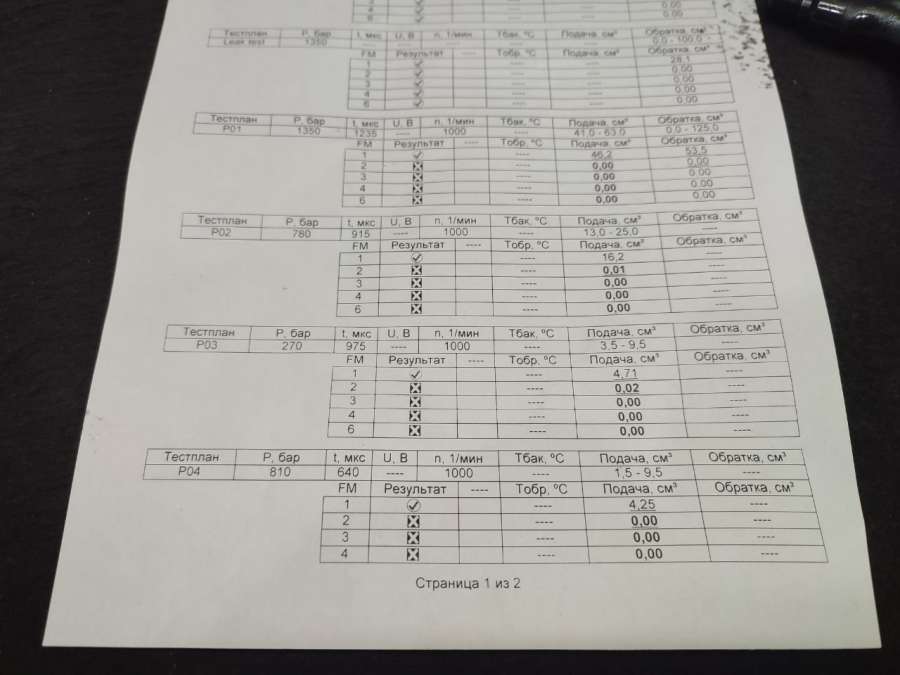 0,00
4 0,00
6 0,00
Тестплан Р, бар t, мкс U, В n, 1/мин Тбак, ºС Подача, см³ Обратка, см³
Leak test 1350 ---- ---- ---- ---- ---- 0,0 - 100,0
FM Результат ---- Тобр, ºС Подача, см³ Обратка, см³
1 ---- ---- 28,1
2 ---- ---- 0,00
3 ---- ---- 0,00
4 ---- ---- 0,00
6 ---- ---- 0,00
Тестплан Р, бар t, мкс U, В n, 1/мин Тбак, ºС Подача, см³ Обратка, см³
P01 1350 1235 ---- 1000 ---- 41,0 - 63,0 0,0 - 125,0
FM Результат ---- Тобр, ºС Подача, см³ Обратка, см³
1 ---- 46,2 53,5
2 ---- 0,00 0,00
3 ---- 0,00 0,00
4 ---- 0,00 0,00
6 ---- 0,00 0,00
Тестплан Р, бар t, мкс U, В n, 1/мин Тбак, ºС Подача, см³ Обратка, см³
P02 780 915 ---- 1000 ---- 13,0 - 25,0 ----
FM Результат ---- Тобр, ºС Подача, см³ Обратка, см³
1 ---- 16,2 ----
2 ---- 0,01 ----
3 ---- 0,00 ----
4 ---- 0,00 ----
6 ---- 0,00 ----
Тестплан Р, бар t, мкс U, В n, 1/мин Тбак, ºС Подача, см³ Обратка, см³
P03 270 975 ---- 1000 ---- 3,5 - 9,5 ----
FM Результат ---- Тобр, ºС Подача, см³ Обратка, см³
1 ---- 4,71 ----
2 ---- 0,02 ----
3 ---- 0,00 ----
4 ---- 0,00 ----
6 ---- 0,00 ----
Тестплан Р, бар t, мкс U, В n, 1/мин Тбак, ºС Подача, см³ Обратка, см³
P04 810 640 ---- 1000 ---- 1,5 - 9,5 ----
FM Результат ---- Тобр, ºС Подача, см³ Обратка, см³
1 ---- 4,25 ----
2 ---- 0,00 ----
3 ---- 0,00 ----
4 ---- 0,00 ----
Страница 1 из 2